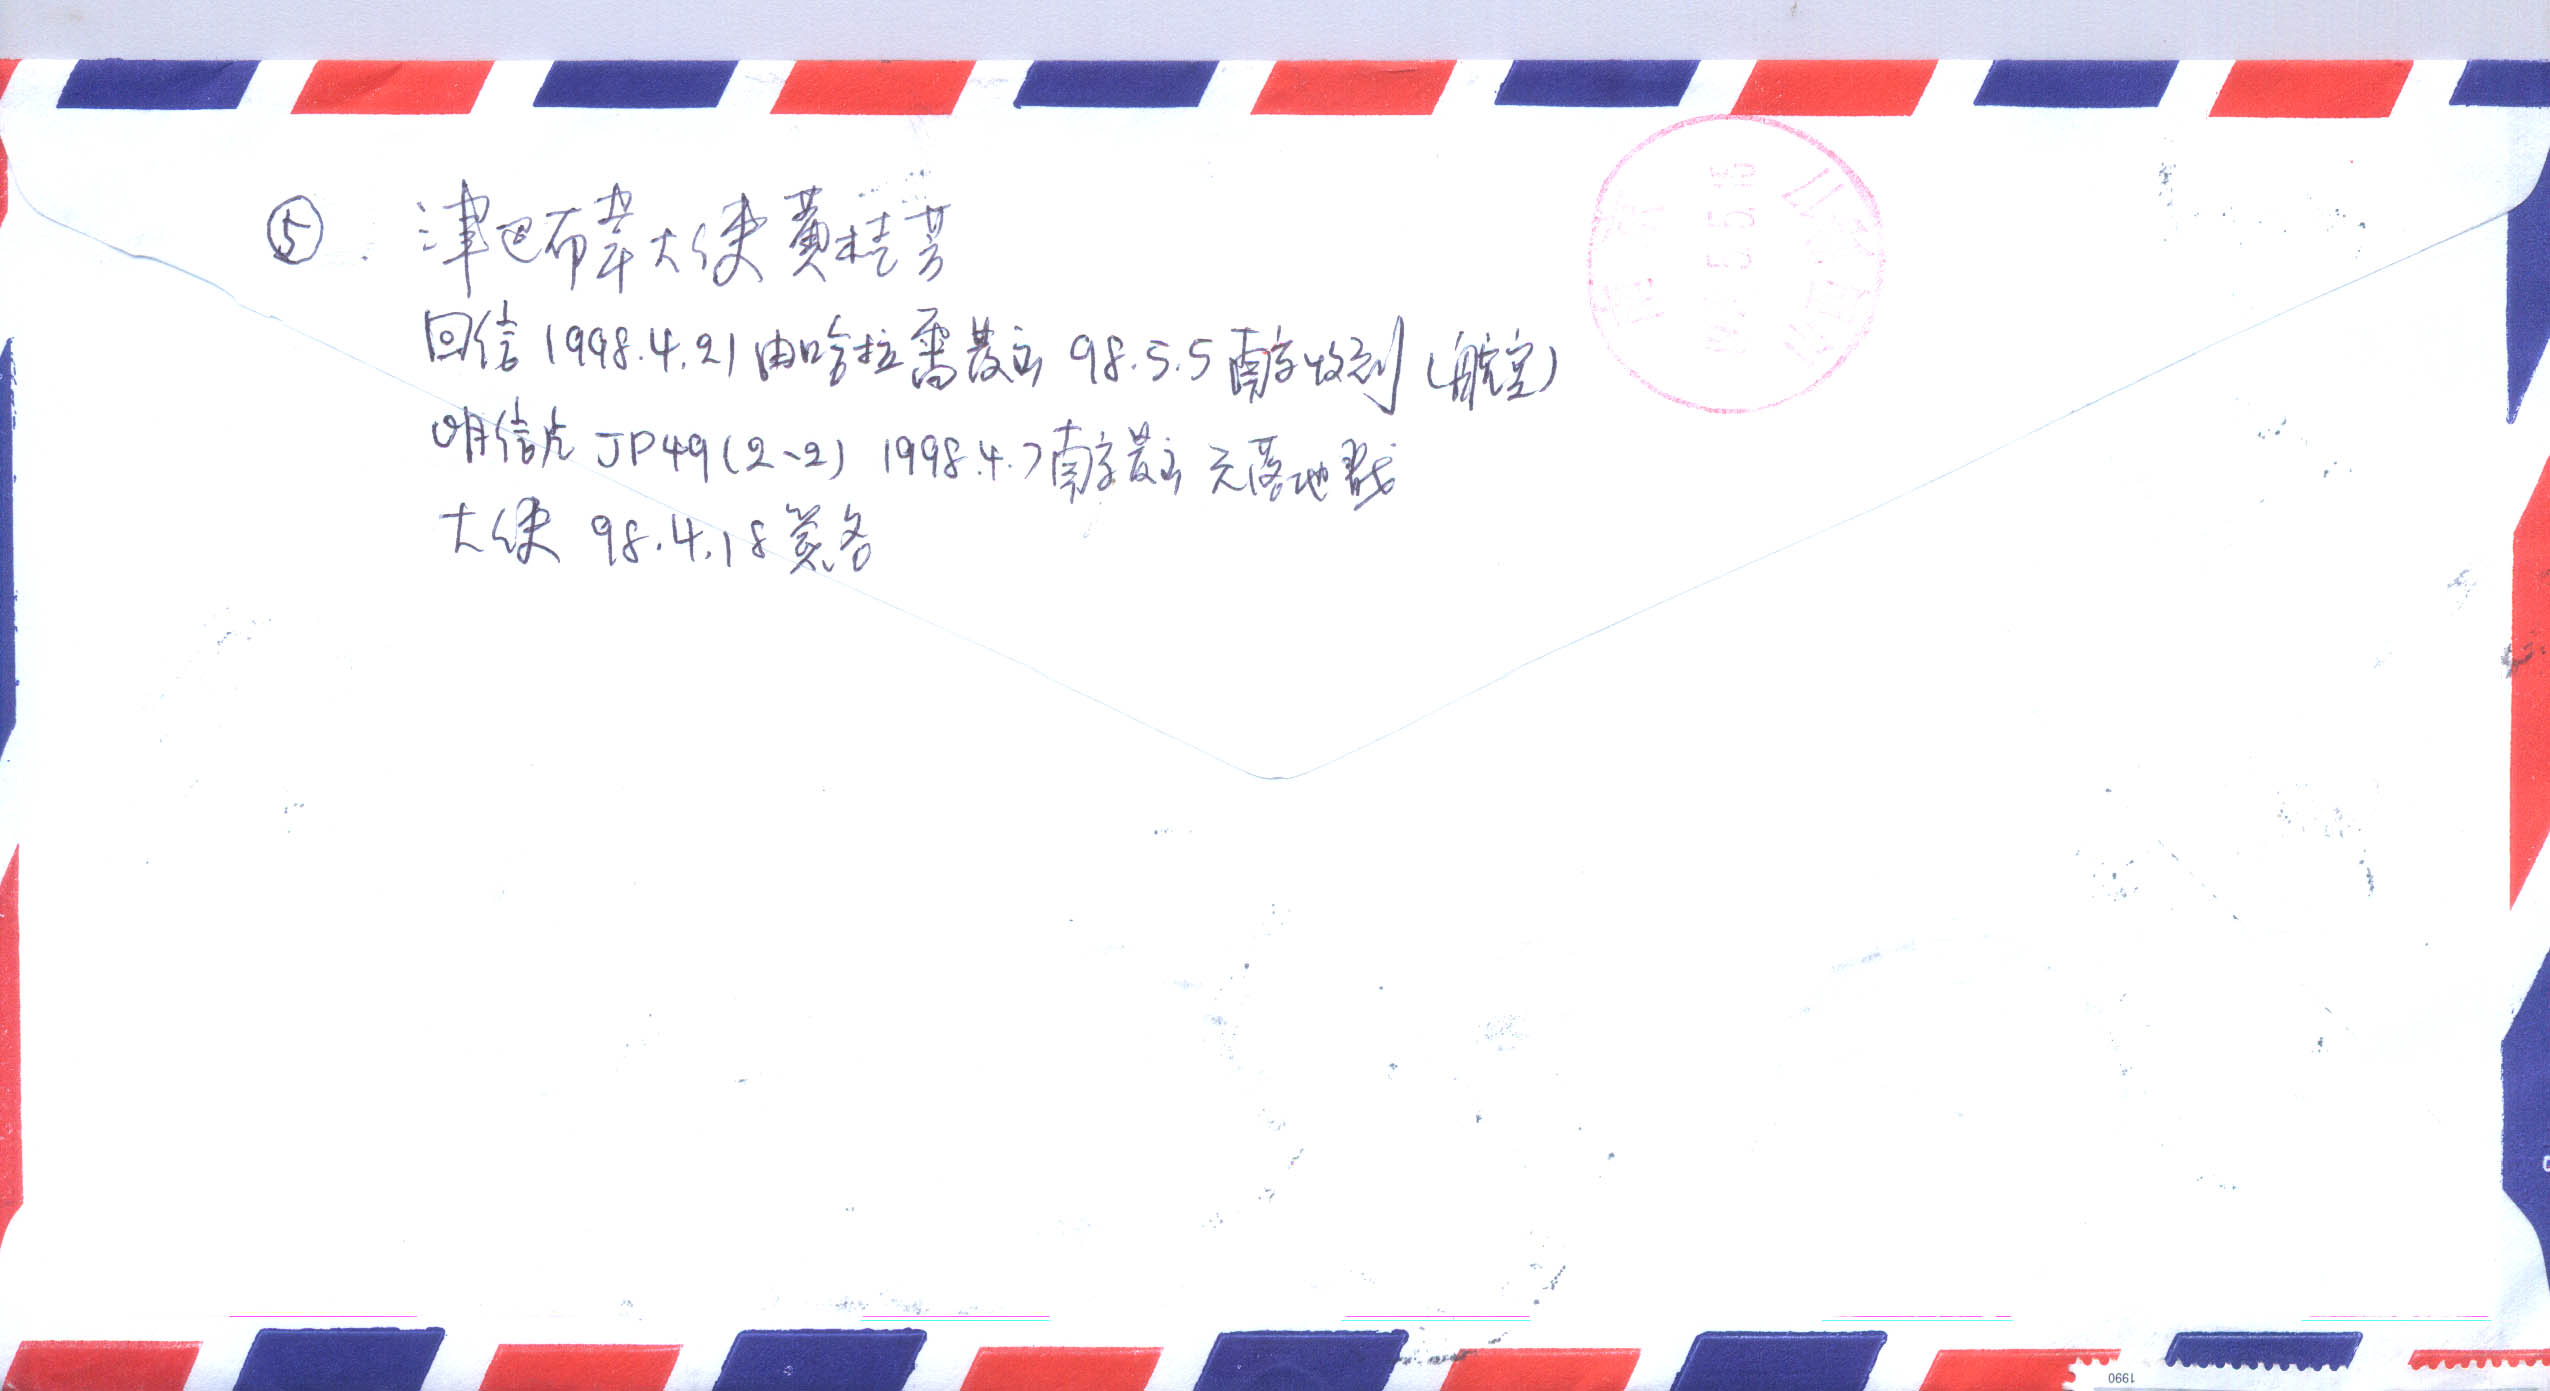 ⑤ 津巴布韦大使黄桂芳
回信 1998.4.21 由哈拉雷发出 98.5.5 南京收到 (航空)
明信片 JP49(2-2) 1998.4.7 南京发出 无落地戳
大使 98.4.18 签名
5.5.15
1990